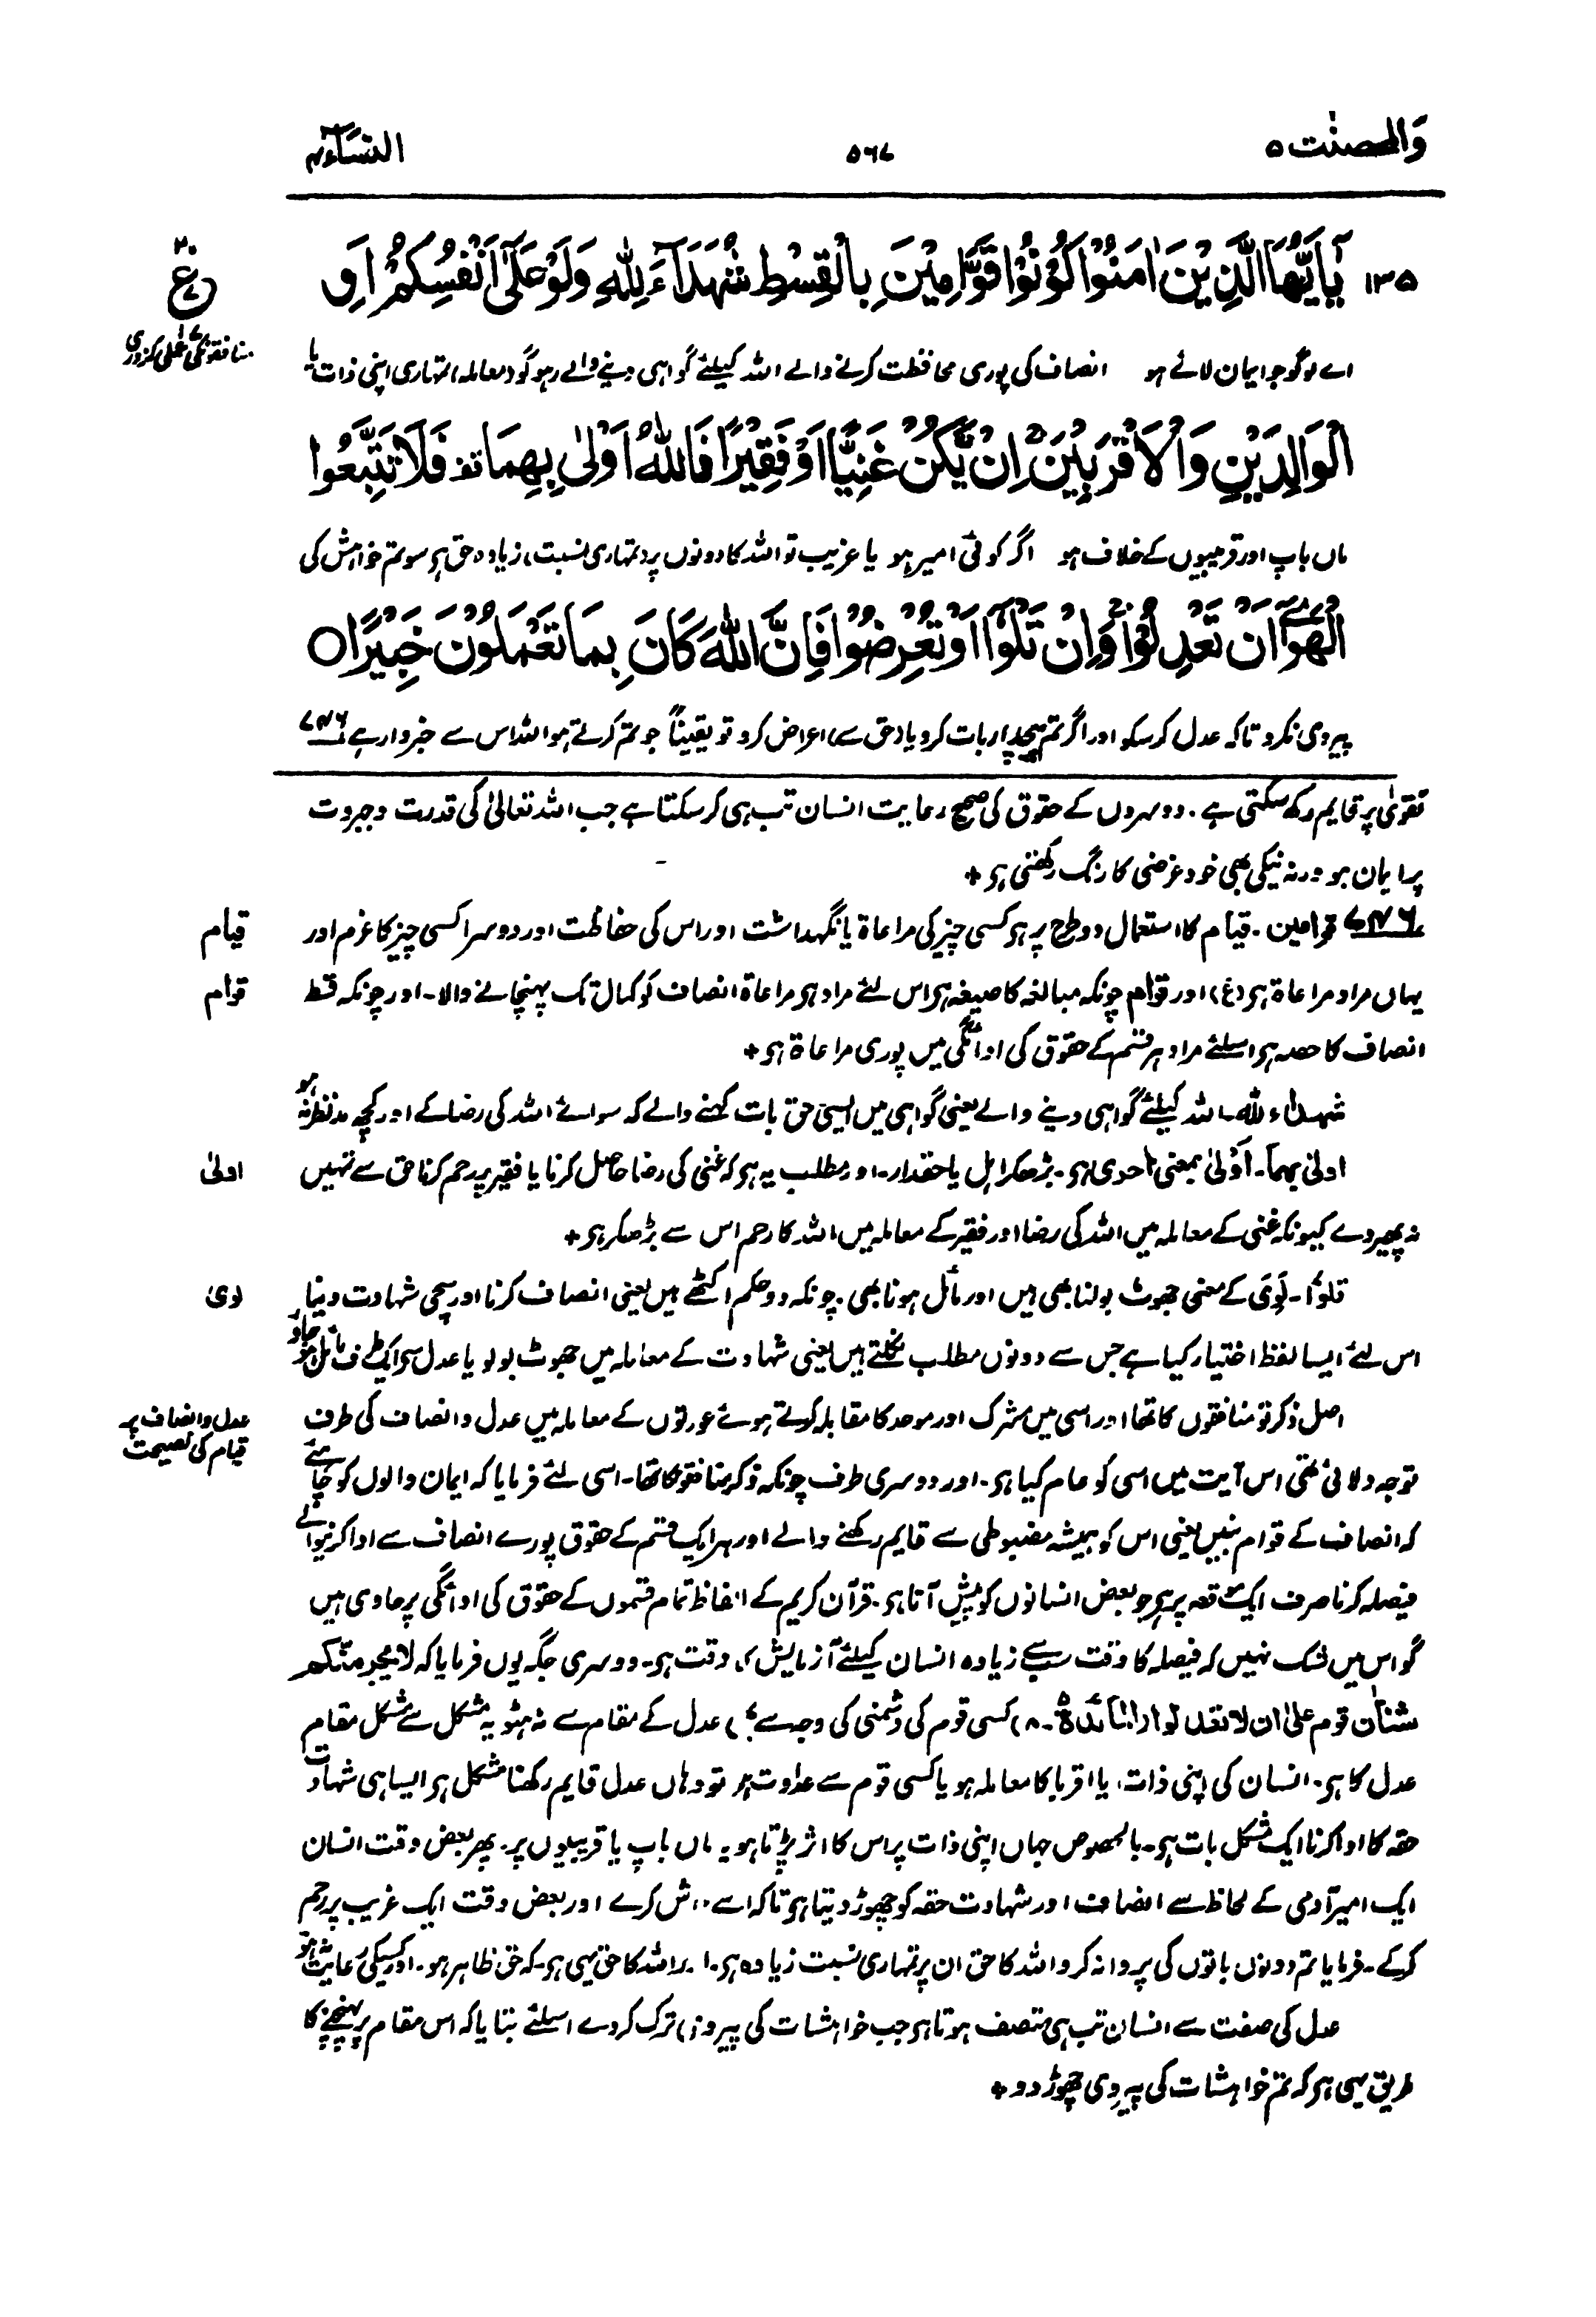 وَالمحصنٰت ۵
۵۶۷
النسآء ۴
۱۳۵ يٰٓاَيُّهَا الَّذِيْنَ اٰمَنُوْا كُوْنُوْا قَوّٰمِيْنَ بِالْقِسْطِ شُهَدَآءَ لِلّٰهِ وَلَوْ عَلٰٓى اَنْفُسِكُمْ اَوِ
۲۰
ع
۷
منافقونکی عملی کمزوری
اے لوگو جو ایمان لائے ہو انصاف کی پوری محافظت کرنے والے اللہ کیلئے گواہی دینے والے رہو گو (معاملہ) تمہاری اپنی ذات یا
الْوَالِدَيْنِ وَالْاَقْرَبِيْنَ اِنْ يَّكُنْ غَنِيًّا اَوْ فَقِيْرًا فَاللّٰهُ اَوْلٰى بِهِمَا فَلَا تَتَّبِعُوا
ماں باپ اور قریبیوں کے خلاف ہو اگر کوئی امیر ہو یا غریب تو اللہ کا دونوں پر (تمہاری نسبت) زیادہ حق ہے سو تم خواہش کی
الْهَوٰٓى اَنْ تَعْدِلُوْا وَاِنْ تَلْوٗٓا اَوْ تُعْرِضُوْا فَاِنَّ اللّٰهَ كَانَ بِمَا تَعْمَلُوْنَ خَبِيْرًا ○
پیروی نکرو تاکہ عدل کر سکو اور اگر تم پیچدار بات کرو یا (حق سے) اعراض کرو تو یقیناً جو تم کرتے ہو اللہ اس سے خبردار ہے ۷۴۶
تقویٰ پر قایم رکھ سکتی ہے۔ دوسروں کے حقوق کی صحیح رعایت انسان تب ہی کر سکتا ہے جب اللہ تعالیٰ کی قدرت و جبروت
پر ایمان ہو ورنہ نیکی بھی خود غرضی کا رنگ رکھتی ہے +
۷۴۶ قوامین۔ قیام کا استعمال دو طرح پر ہے کسی چیز کی مراعاۃ یا نگہداشت اور اس کی حفاظت اور دوسرا کسی چیز کا عزم اور
قیام
یہاں مراد مراعاۃ ہے (غ) اور قوام چونکہ مبالغہ کا صیغہ ہے اس لئے مراد ہے مراعاۃ انصاف کو کمال تک پہنچانے والا۔ اور چونکہ قسط
قوام
انصاف کا حصہ ہے اسلئے مراد ہر قسم کے حقوق کی ادائگی میں پوری مراعاۃ ہے +
شہداء للہ۔ اللہ کیلئے گواہی دینے والے یعنی گواہی میں ایسی حق بات کہنے والے کہ سوائے اللہ کی رضا کے اور کچھ مدنظر نہ ہو
اولیٰ بھما۔ اَوْلیٰ بمعنی احری ہے۔ بڑھکر اہل یا حقدار۔ اور مطلب یہ ہے کہ غنی کی رضا حاصل کرنا یا فقیر پر رحم کرنا حق سے تمہیں
اولیٰ
نہ پھیر دے کیونکہ غنی کے معاملہ میں اللہ کی رضا اور فقیر کے معاملہ میں اللہ کا رحم اس سے بڑھکر ہے +
تلوٗا۔ لَوِیَ کے معنی جھوٹ بولنا بھی ہیں اور مائل ہونا بھی۔ چونکہ دو حکم اکٹھے ہیں یعنی انصاف کرنا اور سچی شہادت دینا
لوی
اس لئے ایسا لفظ اختیار کیا ہے جس سے دونوں مطلب نکلتے ہیں یعنی شہادت کے معاملہ میں جھوٹ بولو یا عدل سے ایک طرف مائل ہو جاؤ
اصل ذکر تو منافقوں کا تھا اور اسی میں مشرک اور موحد کا مقابلہ کرتے ہوئے عورتوں کے معاملہ میں عدل و انصاف کی طرف
عدل و انصاف پر
قیام کی نصیحت
توجہ دلائی تھی اس آیت میں اسی کو عام کیا ہے۔ اور دوسری طرف چونکہ ذکر منافقوں کا تھا۔ اسی لئے فرمایا کہ ایمان والوں کو چاہئے
کہ انصاف کے قوام بنیں یعنی اس کو ہمیشہ مضبوطی سے قایم رکھنے والے اور ہر ایک قسم کے حقوق پورے انصاف سے ادا کرنیوالے
فیصلہ کرنا صرف ایک موقعہ پر ہے جو بعض انسانوں کو پیش آتا ہے۔ قرآن کریم کے الفاظ تمام قسموں کے حقوق کی ادائگی پر حاوی ہیں
گو اس میں شک نہیں کہ فیصلہ کا وقت سب سے زیادہ انسان کیلئے آزمایش کا وقت ہے۔ دوسری جگہ یوں فرمایا کہ لا یجرمنکم
شناٰن قوم علیٰ ان لا تعدلوا (المآئدۃ ۵۔ ۸) کسی قوم کی دشمنی کی وجہ سے بھی عدل کے مقام سے نہ ہٹو یہ مشکل سے مشکل مقام
عدل کا ہے۔ انسان کی اپنی ذات یا اقربا کا معاملہ ہو یا کسی قوم سے عداوت ہو تو وہاں عدل قایم رکھنا مشکل ہے ایسا ہی شہادت
حقہ کا ادا کرنا ایک مشکل بات ہے۔ بالخصوص جہاں اپنی ذات پر اس کا اثر پڑتا ہو یا ماں باپ یا قریبیوں پر۔ پھر بعض وقت انسان
ایک امیر آدمی کے لحاظ سے انصاف اور شہادت حقہ کو چھوڑ دیتا ہے تاکہ اسے کرے اور بعض وقت ایک غریب پر رحم
کرکے۔ فرمایا تم دونوں باتوں کی پروا نہ کرو اللہ کا حق ان پر تمہاری نسبت زیادہ ہے۔ اور اللہ کا حق یہی ہے۔ کہ حق ظاہر ہو۔ اور کسیکی رعایت نہ ہو
عدل کی صفت سے انسان تب ہی متصف ہوتا ہے جب خواہشات کی پیروی ترک کردے اسلئے بتایا کہ اس مقام پر پہنچنے کا
طریق یہی ہے کہ تم خواہشات کی پیروی چھوڑ دو +